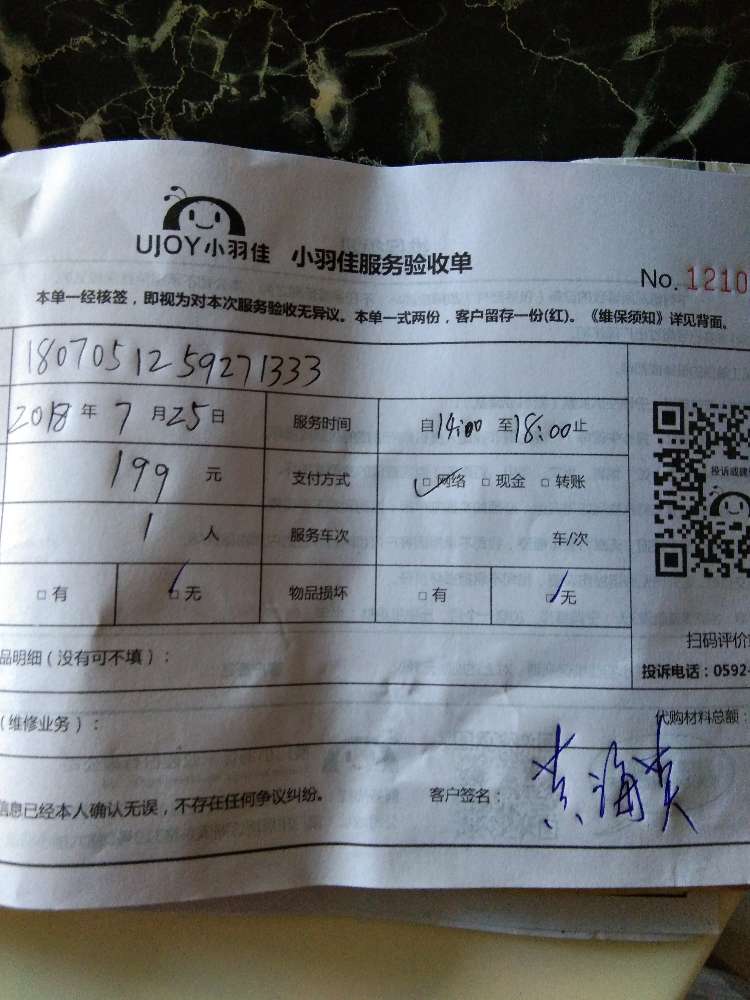 UJOY小羽佳 小羽佳服务验收单
No. 1210
本单一经核签，即视为对本次服务验收无异议。本单一式两份，客户留存一份(红)。《维保须知》详见背面。
1807051259271333
2018年7月25日 服务时间 自14:00至18:00止
199元 支付方式 □网络 □现金 □转账
投诉或建
1人 服务车次 车/次
□有 □无 物品损坏 □有 □无
扫码评价
品明细（没有可不填）：
投诉电话：0592-
（维修业务）： 代购材料总额：
信息已经本人确认无误，不存在任何争议纠纷。 客户签名：